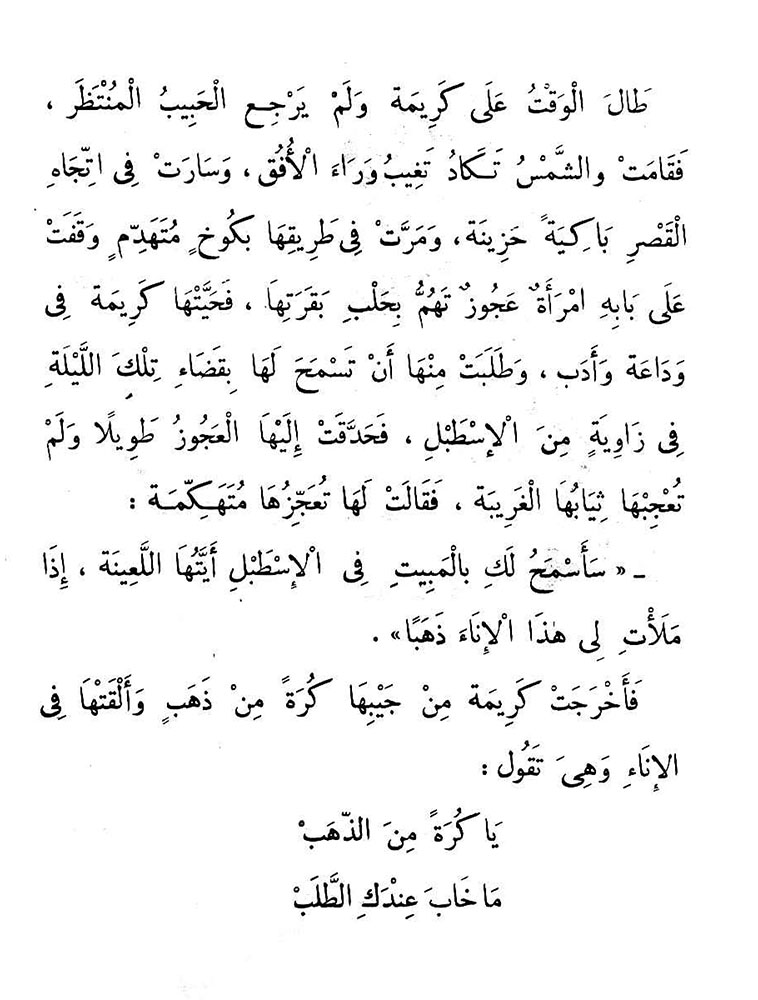 طَالَ الْوَقْتُ عَلَى كَرِيمَة وَلَمْ يَرْجِعِ الْحَبِيبُ الْمُنْتَظَر ،
فَقَامَتْ والشَّمْسُ تَكَادُ تَغِيبُ وَرَاءَ الْأُفُق ، وَسَارَتْ فِى اتِّجَاهِ
الْقَصْرِ بَاكِيَةً حَزِينَة ، وَمَرَّتْ فِى طَرِيقِهَا بكُوخٍ مُتَهَدِّمٍ وَقَفَتْ
عَلَى بَابِهِ امْرَأَةٌ عَجُوزٌ تَهُمُّ بِحَلْبِ بَقرَتِهَا ، فَحَيَّتْهَا كَرِيمَة فِى
وَدَاعَة وَأَدَب ، وَطَلَبَتْ مِنْهَا أَنْ تَسْمَحَ لَهَا بِقَضَاءِ تِلْكَ اللَّيْلَةِ
فِى زَاوِيَةٍ مِنَ الْإسْطَبْلِ ، فَحَدَّقَتْ إِلَيْهَا الْعَجُوزُ طَوِيلًا وَلَمْ
تُعْجِبْهَا ثِيَابُهَا الْغَرِيبَة ، فَقَالَتْ لَهَا تُعَجِّزُهَا مُتَهَكِّمَة :
ـ « سَأَسْمَحُ لَكِ بالْمَبِيتِ فِى الْإِسْطَبْلِ أَيَّتُهَا اللَّعِينَة ، إِذَا
مَلَأْتِ لِى هٰذَا الْإِنَاءَ ذَهَبًا » .
فَأَخْرَجَتْ كَرِيمَة مِنْ جَيْبِهَا كُرَةً مِنْ ذَهَبٍ وَأَلْقَتْهَا فِى
الإنَاءِ وَهِىَ تَقُول :
يَا كُرَةً مِنَ الذّهَبْ
مَا خَابَ عِنْدَكِ الطَّلَبْ